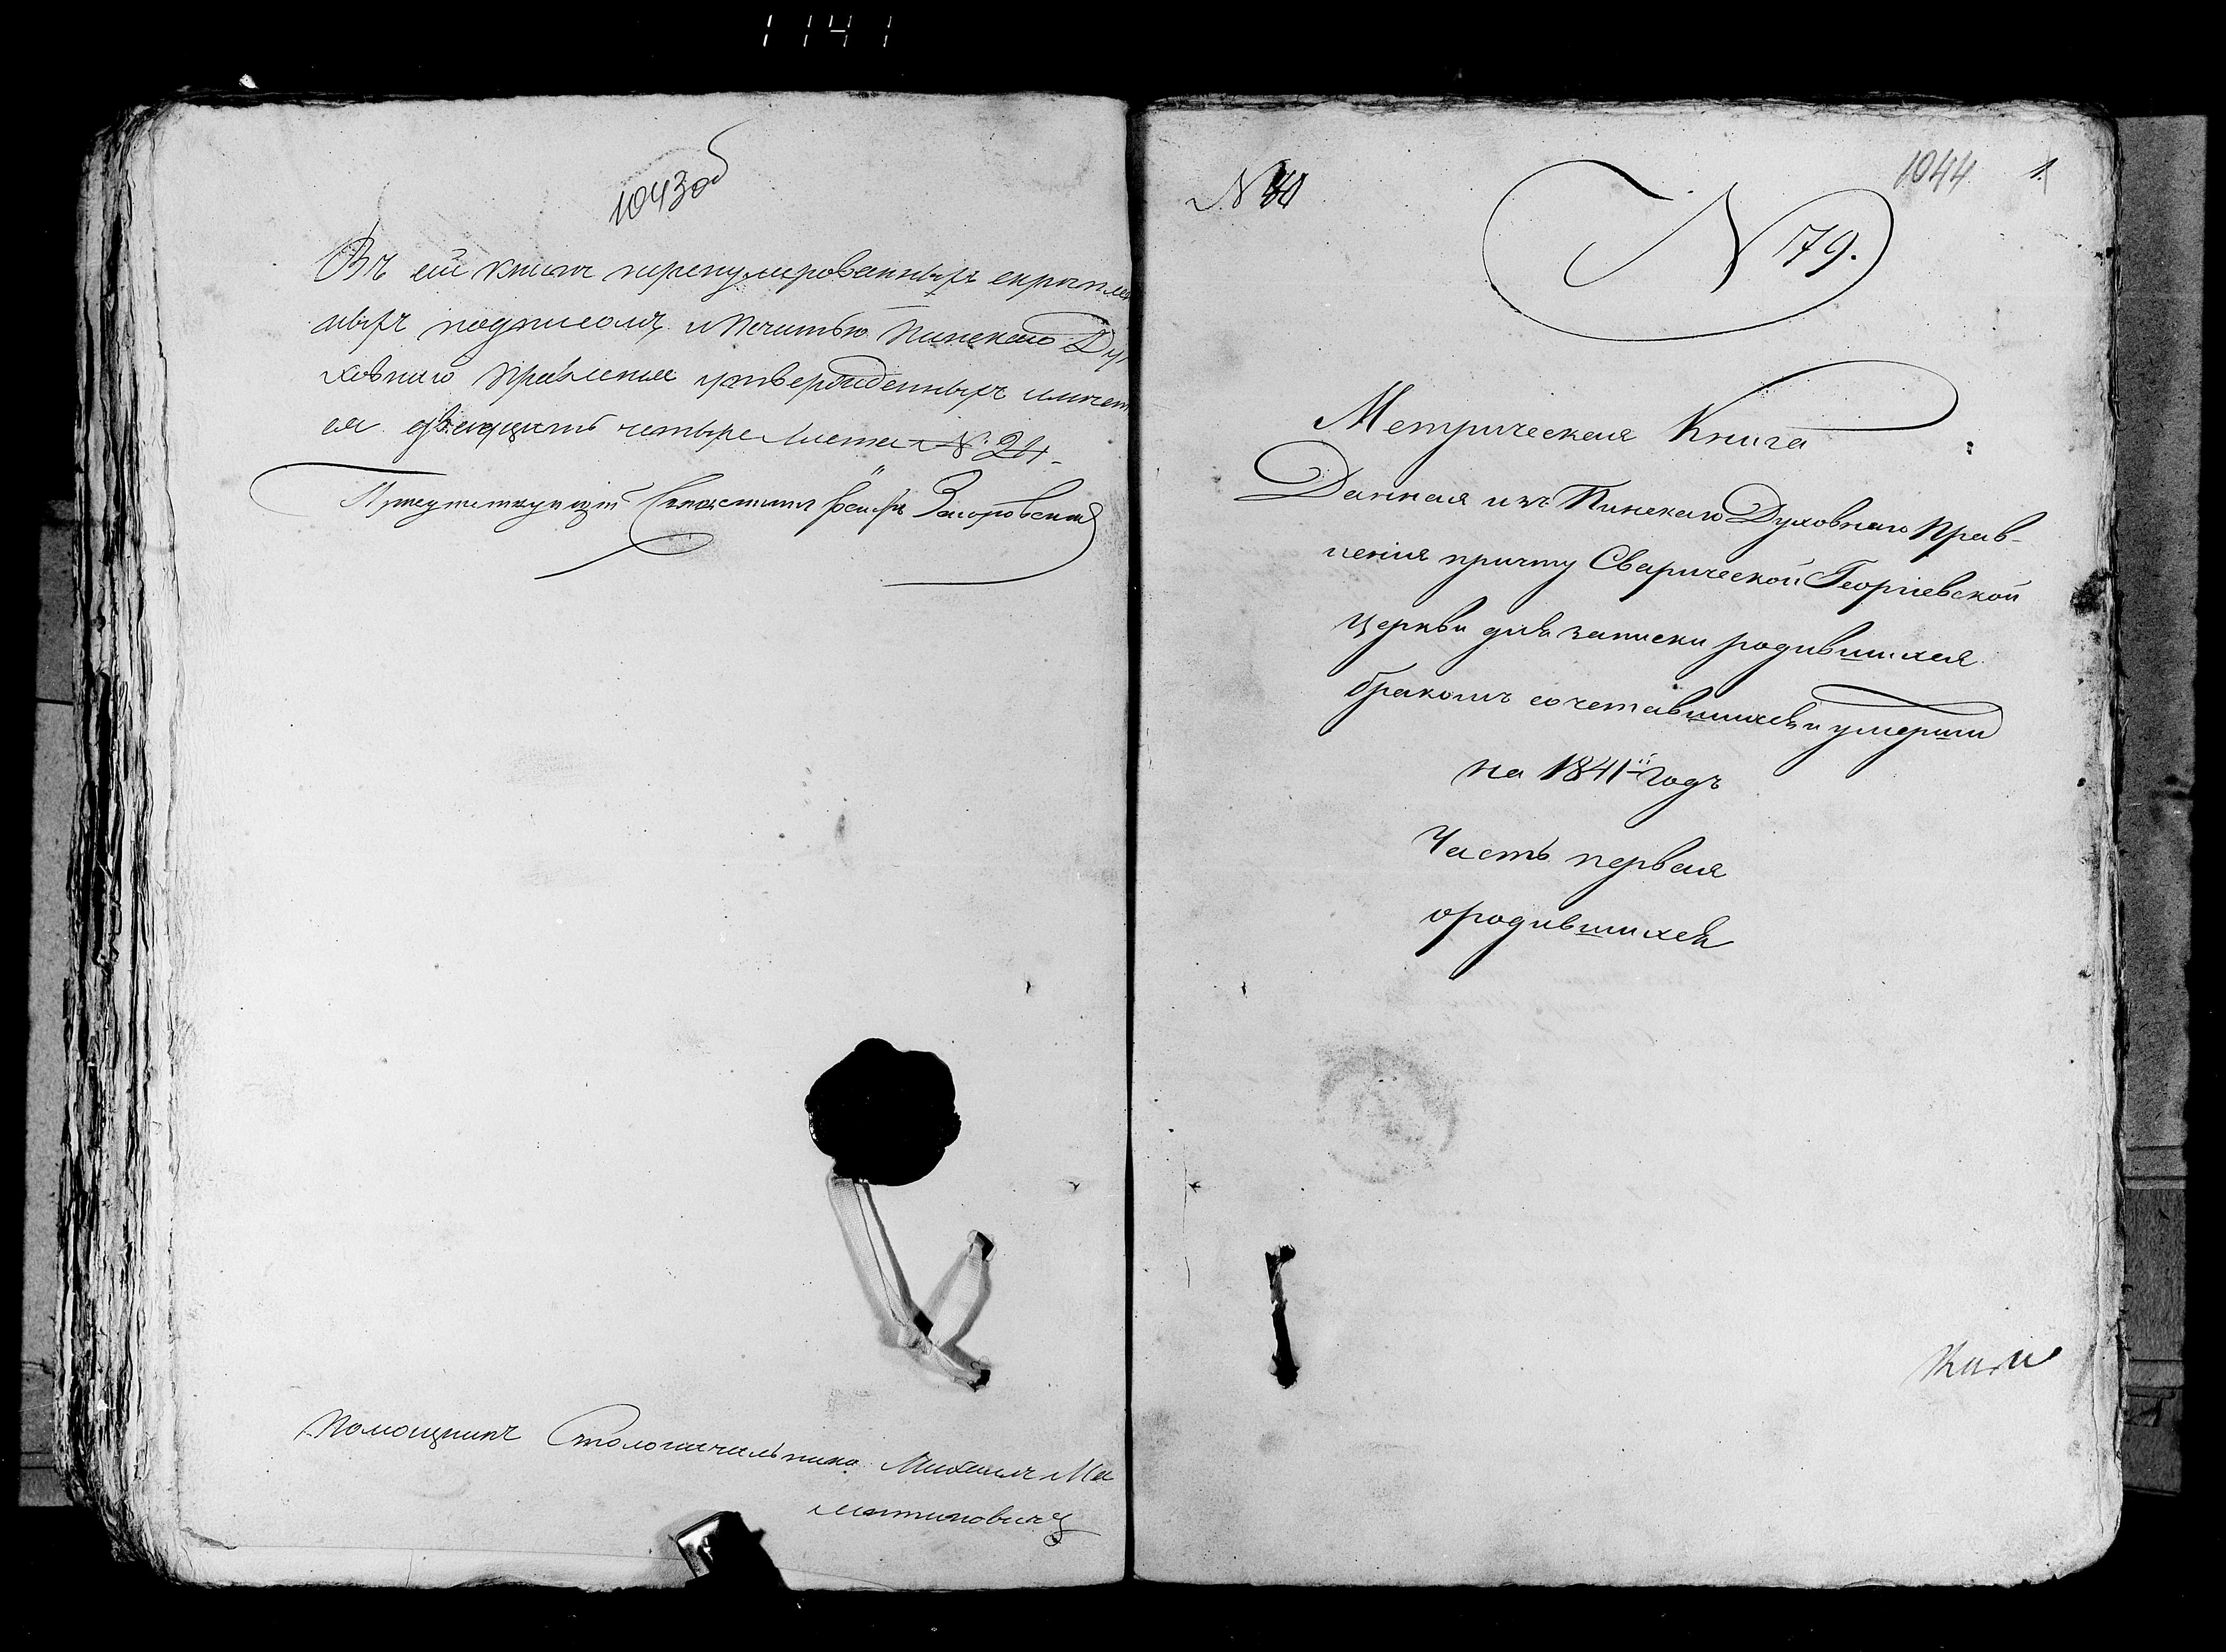 1141
1043об
Въ сей книгѣ перенумерованныхъ скрѣплен
ныхъ подписомъ и Печатью Пинскаго Ду
ховнаго Правленія утвержденныхъ имѣет
ся двадцать четыре Листа N: 24.
Присутствующій Священникъ Іосифъ
Помощникъ Столоначальника Михаилъ Ма
1044 1
N 79.
Метрическая Книга
Данная изъ Пинскаго Духовнаго Прав-
ленія причту Сварической Георгіевской
Церкви для записки родившихся
бракомъ сочетавшихся и умерши
на 1841й Годъ
Часть первая
о родившихся